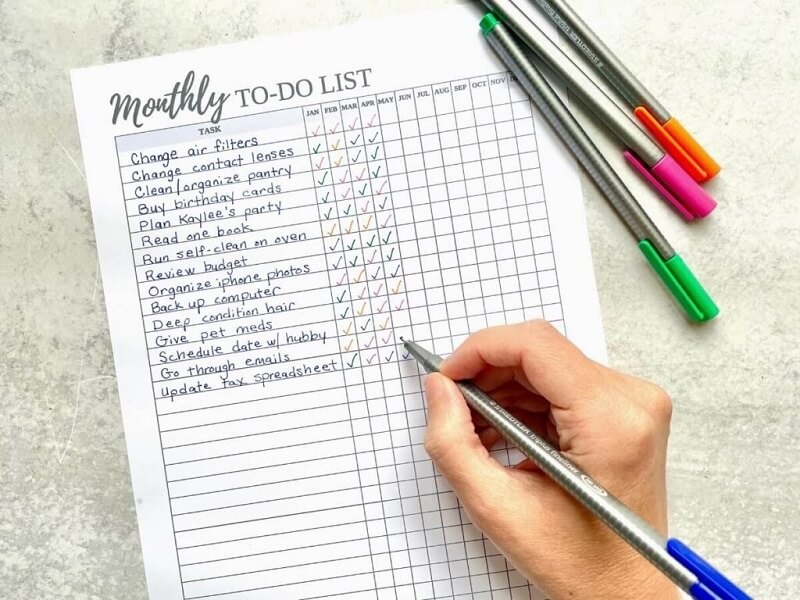 Monthly TO-DO LIST
TASK JAN FEB MAR APR MAY JUN JUL AUG SEP OCT NOV
Change air filters
Change contact lenses
Clean/organize pantry
Buy birthday cards
Plan Kaylee's party
Read one book
Run self-clean on oven
Review budget
Organize iphone photos
Back up computer
Deep condition hair
Give pet meds
Schedule date w/ hubby
Go through emails
Update tax spreadsheet
STAEDTLER triplus fineliner